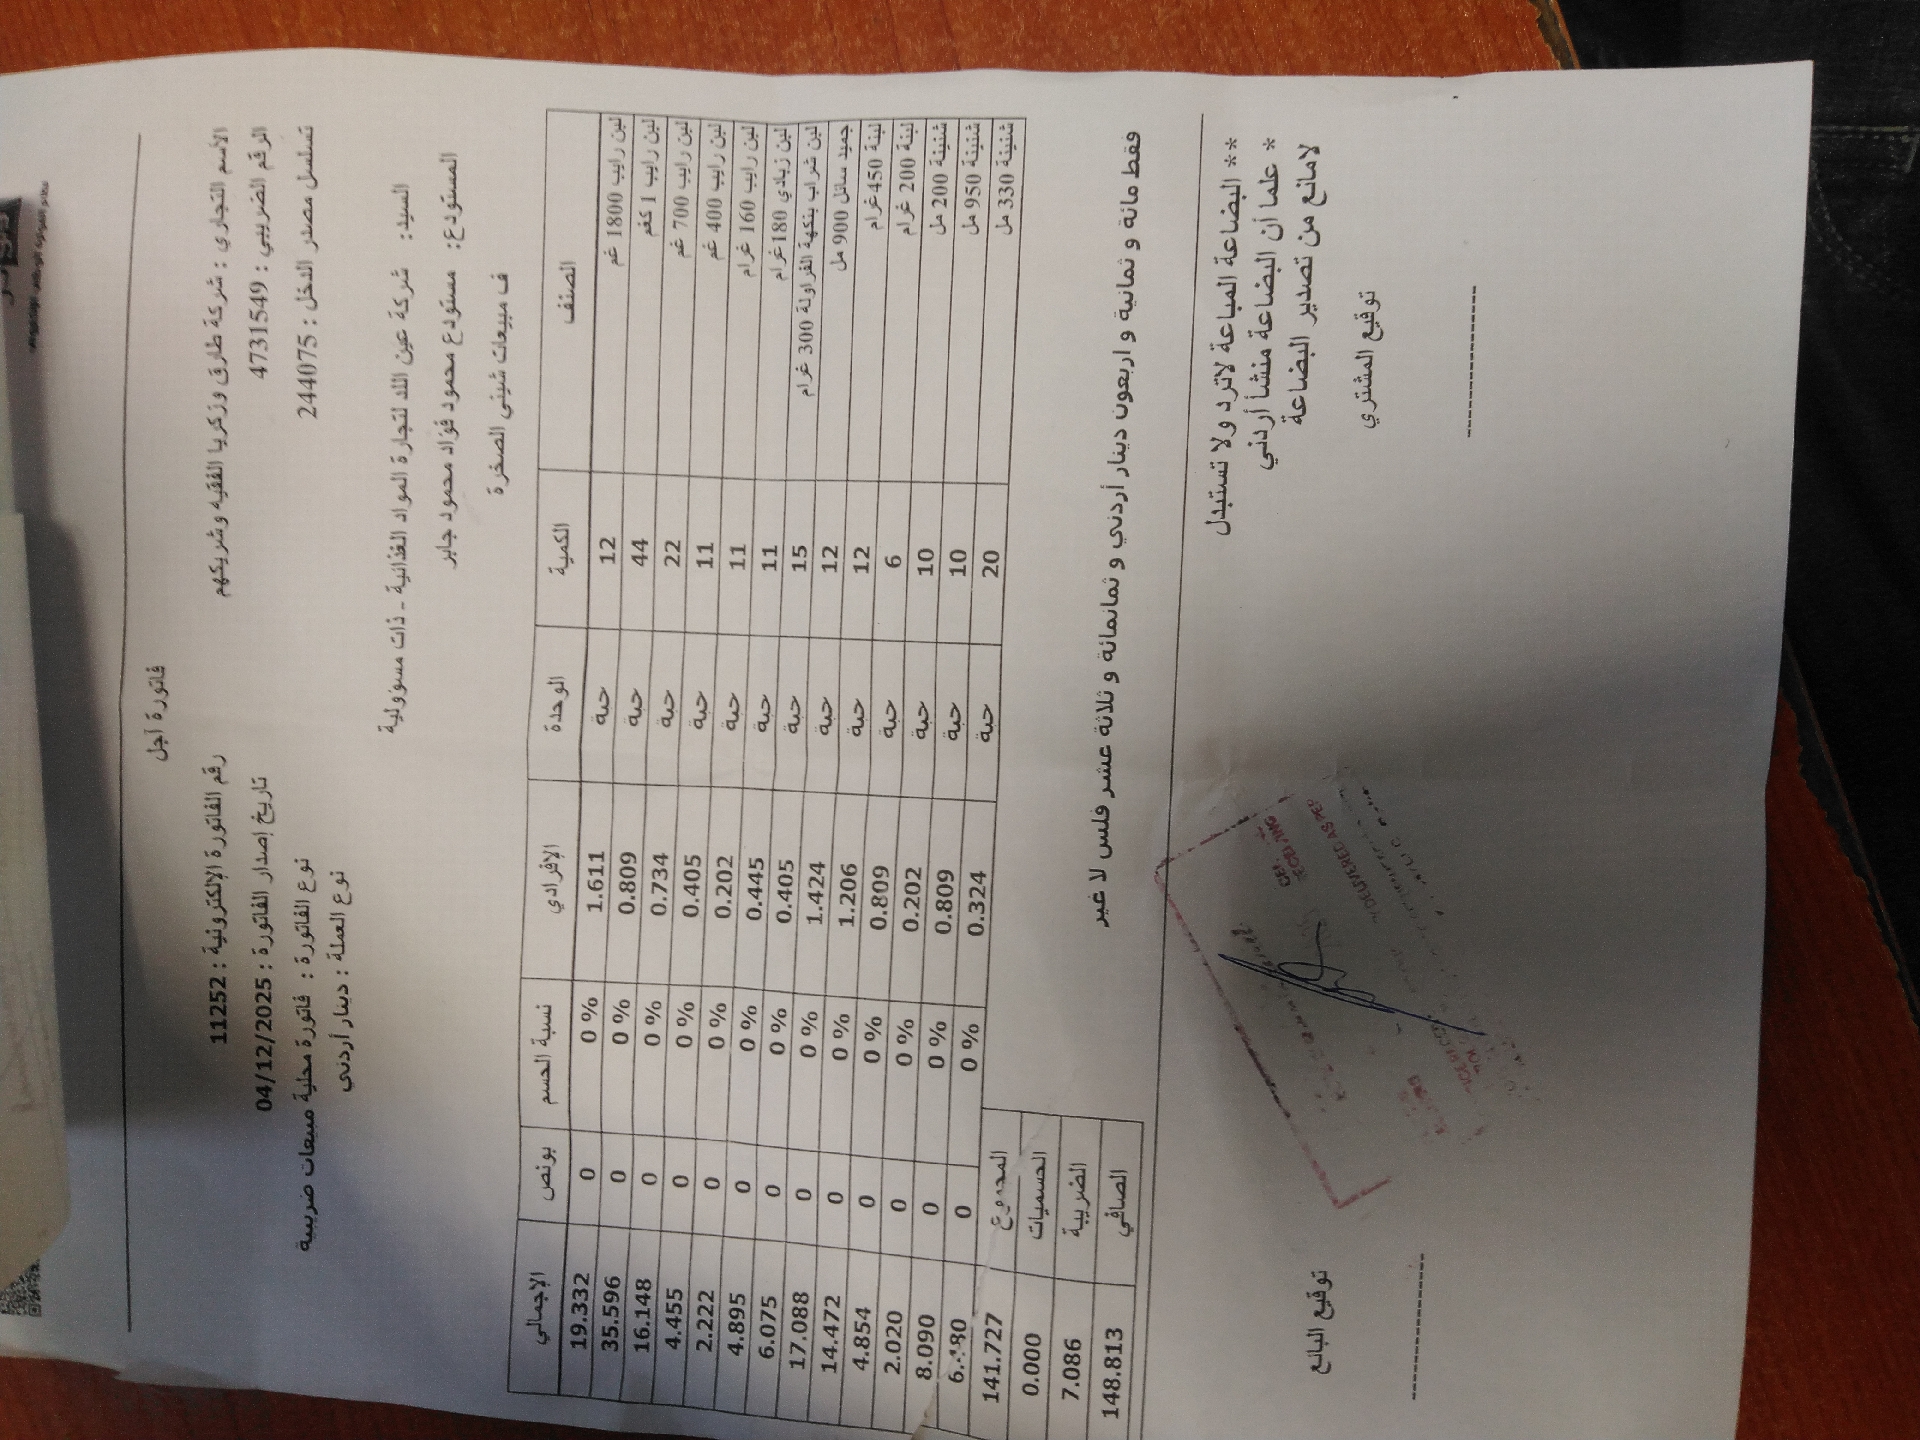 فاتورة آجل
الأسم التجاري : شركة طارق وزكريا الفقيه وشريكهم
رقم الفاتورة الإلكترونية : 11252
الرقم الضريبي : 47331549
تاريخ إصدار الفاتورة : 04/12/2025
تسلسل مصدر الدخل : 244075
نوع الفاتورة : فاتورة محلية مبيعات ضريبية
نوع العملة : دينار أردني
السيد: شركة عين اللد لتجارة المواد الغذائية - ذات مسؤولية
المستودع: مستودع محمود فؤاد محمود جابر
ف مبيعات شيني الصخرة
الصنف الكمية الوحدة الإفرادي نسبة الحسم بونص الإجمالي
لبن رايب 1800 غم 12 حبة 1.611 0 % 0 19.332
لبن رايب 1 كغم 44 حبة 0.809 0 % 0 35.596
لبن رايب 700 غم 22 حبة 0.734 0 % 0 16.148
لبن رايب 400 غم 11 حبة 0.405 0 % 0 4.455
لبن رايب 160 غرام 11 حبة 0.202 0 % 0 2.222
لبن زبادي 180غرام 11 حبة 0.445 0 % 0 4.895
لبن شراب بنكهة الفراولة 300 غرام 15 حبة 0.405 0 % 0 6.075
جميد سائل 900 مل 12 حبة 1.424 0 % 0 17.088
لبنة 450غرام 12 حبة 1.206 0 % 0 14.472
لبنة 200 غرام 6 حبة 0.809 0 % 0 4.854
شنينة 200 مل 10 حبة 0.202 0 % 0 2.020
شنينة 950 مل 10 حبة 0.809 0 % 0 8.090
شنينة 330 مل 20 حبة 0.324 0 % 0 6.480
المجموع 141.727
الحسميات 0.000
الضريبة 7.086
الصافي 148.813
فقط مائة و ثمانية و اربعون دينار أردني و ثمانمائة و ثلاثة عشر فلس لا غير
** البضاعة المباعة لاترد ولا تستبدل
* علما أن البضاعة منشأ أردني
لامانع من تصدير البضاعة
توقيع المشتري
توقيع البائع
DELIVERED AS PER